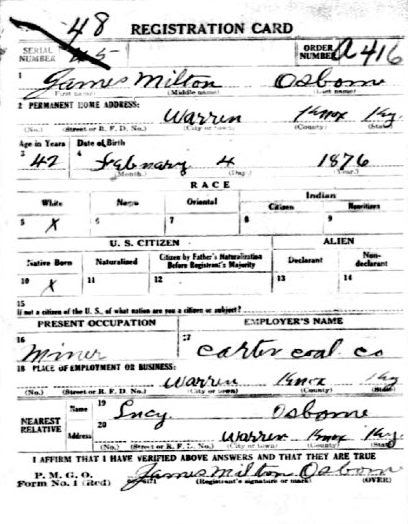 48
REGISTRATION CARD
SERIAL NUMBER 45 ORDER NUMBER A 416
1 James Milton Osborne
(First name) (Middle name) (Last name)
2 PERMANENT HOME ADDRESS:
Warren Knox Ky.
(No.) (Street or R. F. D. No.) (City or town) (County) (State)
Age in Years Date of Birth
3 42 4 February 4 1876
(Month.) (Day.) (Year.)
RACE
White Negro Oriental Indian
Citizen Noncitizen
5 X 6 7 8 9
U. S. CITIZEN ALIEN
Native Born Naturalized Citizen by Father's Naturalization Before Registrant's Majority Declarant Non-declarant
10 X 11 12 13 14
15
If not a citizen of the U. S., of what nation are you a citizen or subject?
PRESENT OCCUPATION EMPLOYER'S NAME
16 Miner 17 Carter Coal Co
18 PLACE OF EMPLOYMENT OR BUSINESS:
Warren Knox Ky.
(No.) (Street or R. F. D. No.) (City or town) (County) (State)
NEAREST RELATIVE
Name 19 Lucy Osborne
Address 20 Warren Knox Ky.
(No.) (Street or R. F. D. No.) (City or town) (County) (State)
I AFFIRM THAT I HAVE VERIFIED ABOVE ANSWERS AND THAT THEY ARE TRUE
P. M. G. O.
Form No. 1 (Red) James Milton Osborn
(Registrant's signature or mark) (OVER)